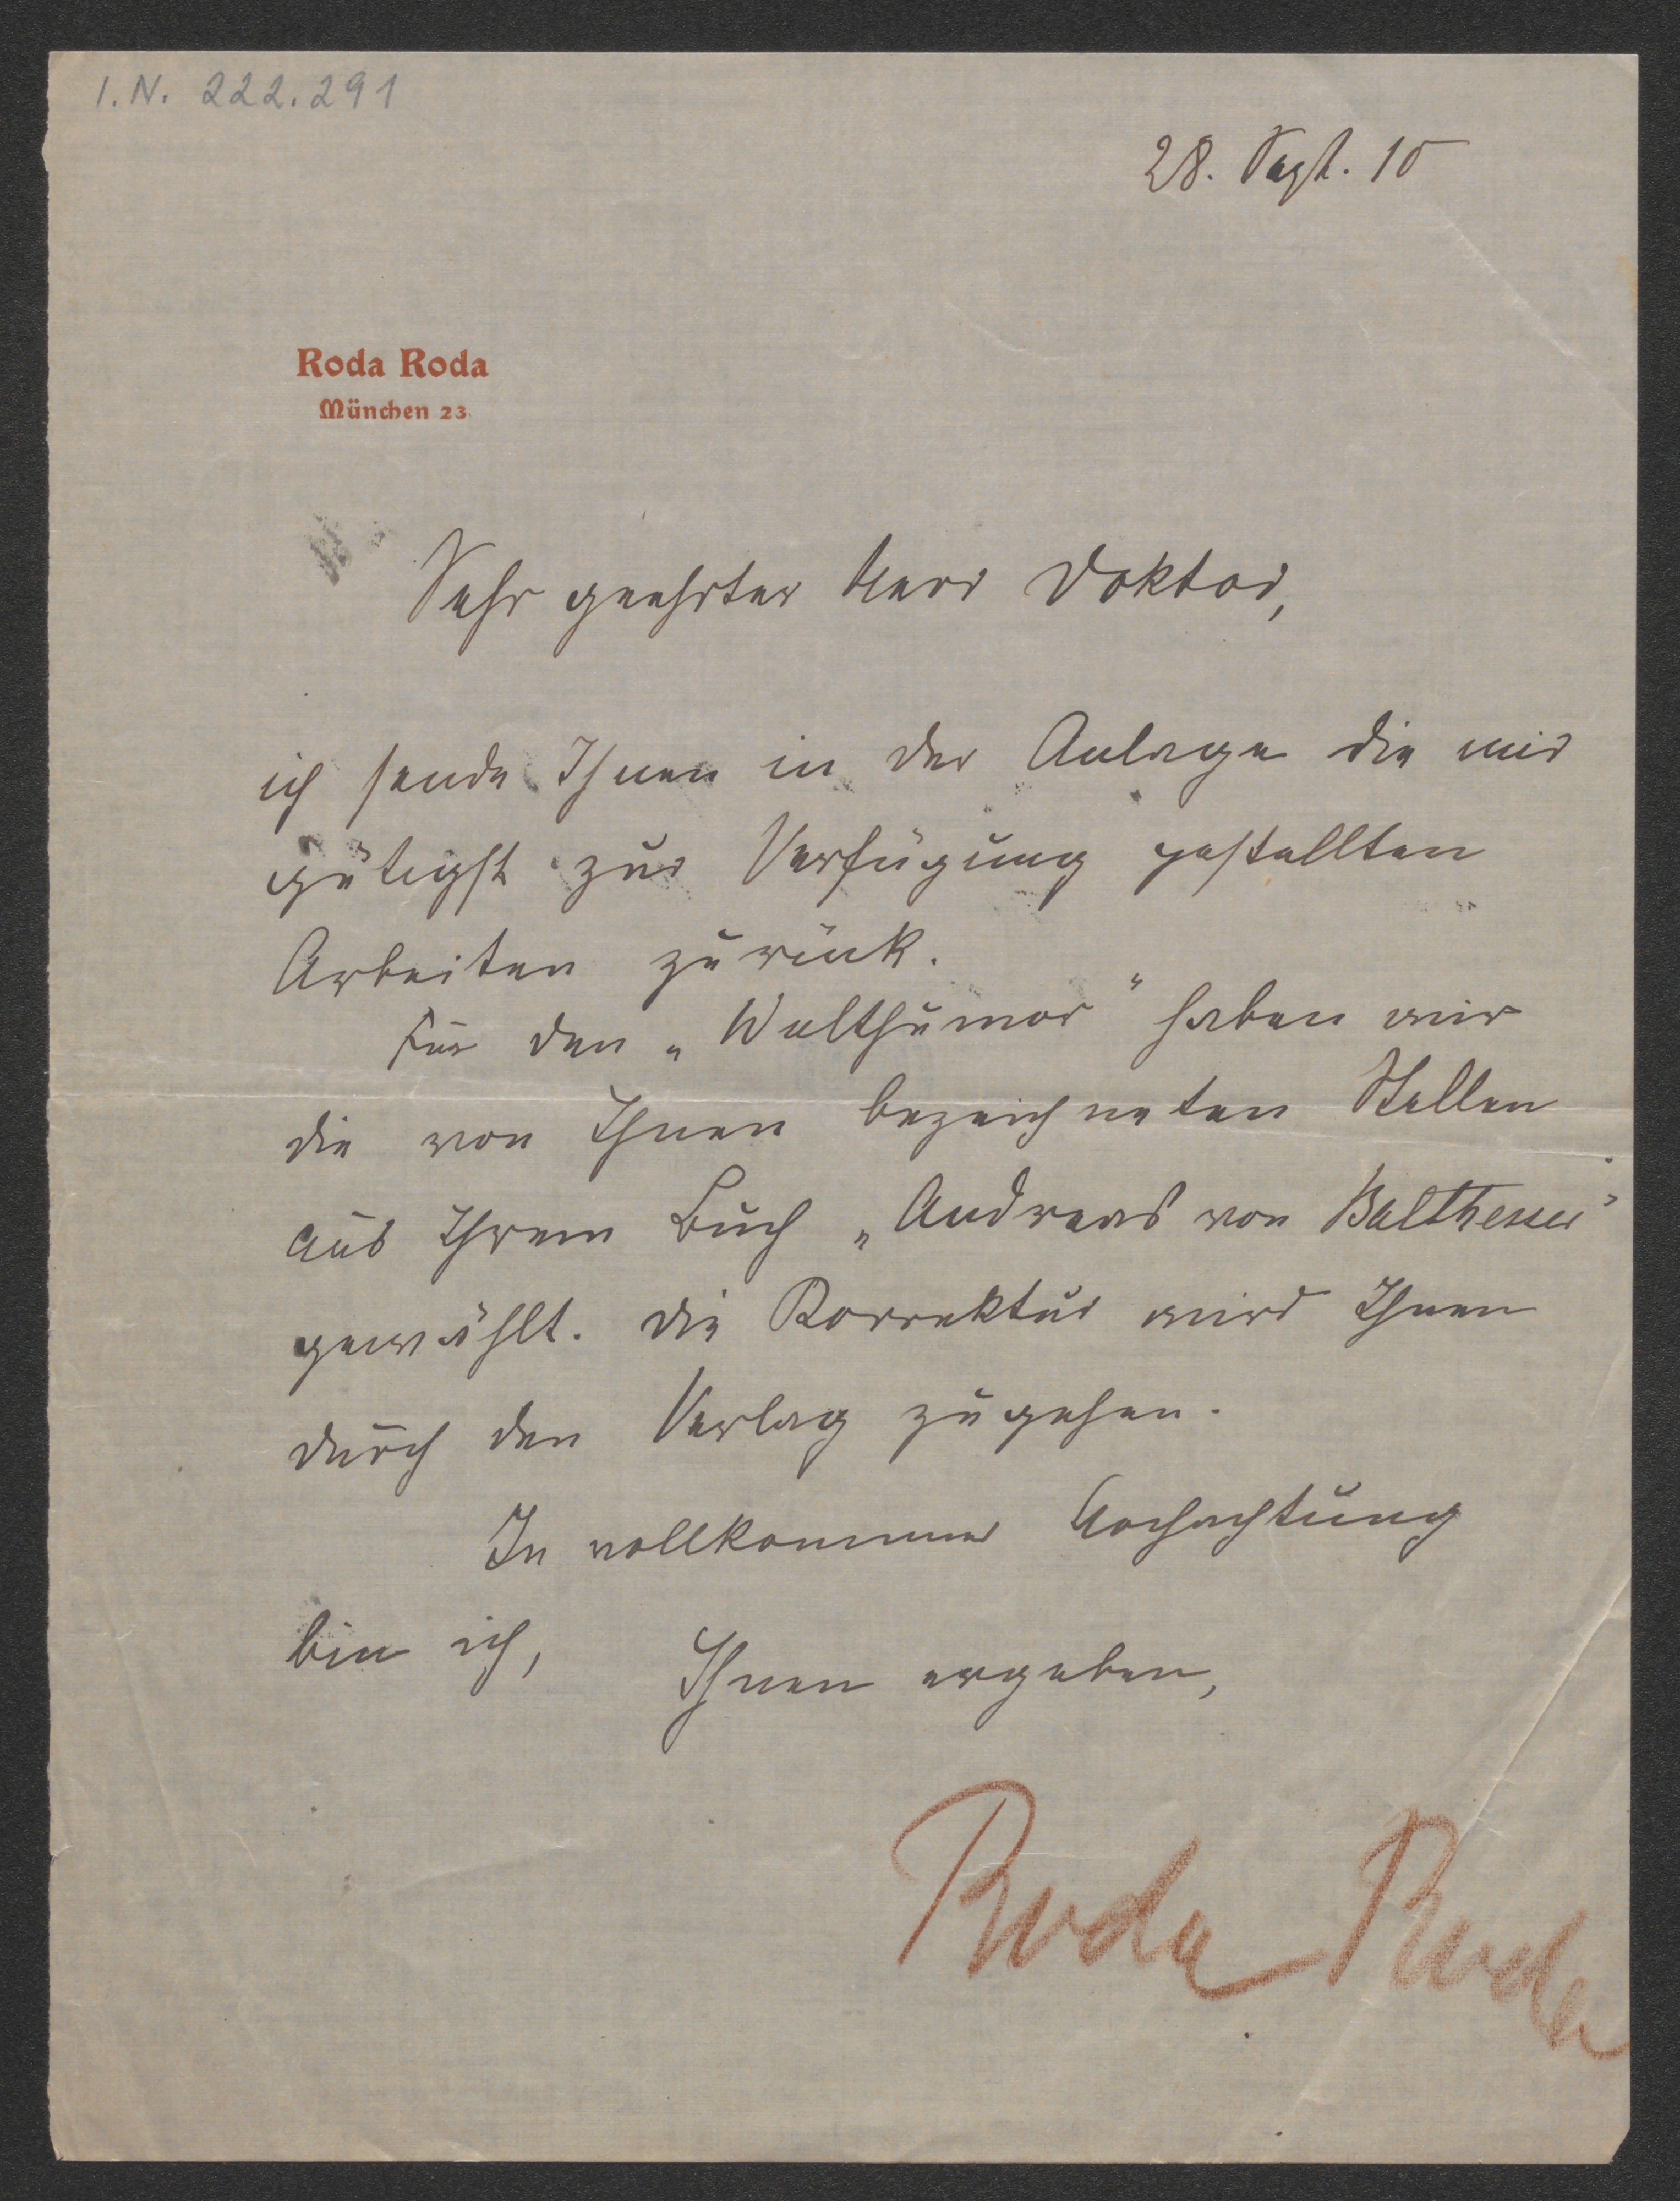 I.N. 222.291
28. Sept. 10
Roda Roda
München 23
Sehr geehrter Herr Doktor,
ich sende Ihnen in der Anlage die mir
gütigst zur Verfügung gestellten
Arbeiten zurück.
Für den „Welthumor“ haben wir
die von Ihnen bezeichneten Stellen
aus Ihrem Buch „Andreas von Balthesser“
gewählt. Die Korrektur wird Ihnen
durch den Verlag zugehen.
In vollkommner Hochachtung
bin ich, Ihnen ergeben,
Roda Roda